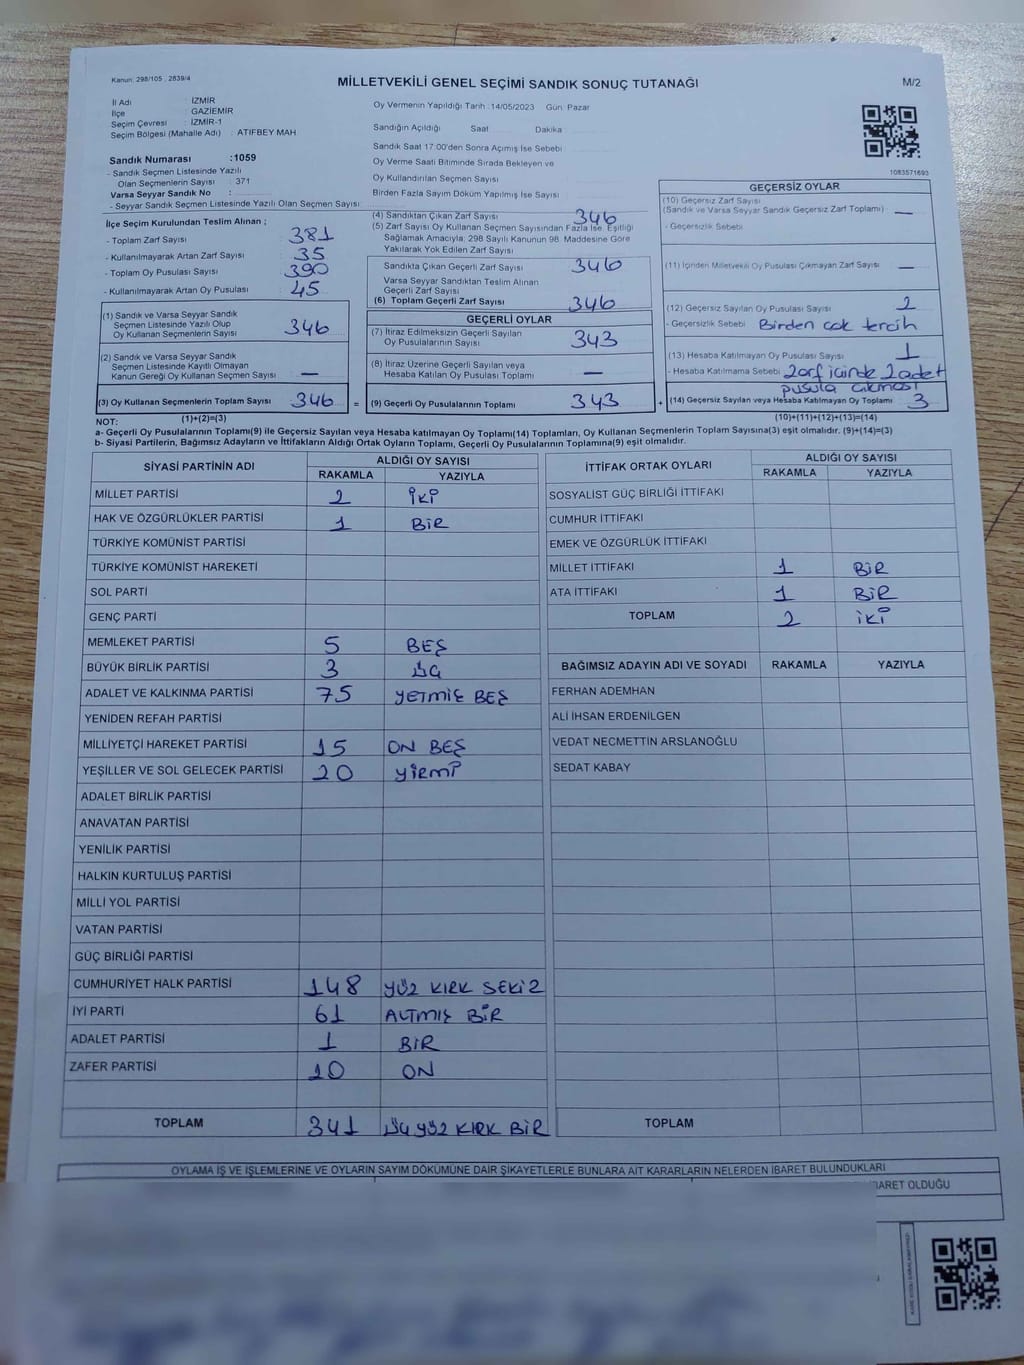 Kanun: 298/105 , 2839/4
MİLLETVEKİLİ GENEL SEÇİMİ SANDIK SONUÇ TUTANAĞI
M/2
İl Adı : İZMİR
İlçe : GAZİEMİR
Seçim Çevresi : İZMİR-1
Seçim Bölgesi (Mahalle Adı) : ATIFBEY MAH
Oy Vermenin Yapıldığı Tarih :14/05/2023 Gün: Pazar
Sandığın Açıldığı Saat Dakika
Sandık Saat 17:00'den Sonra Açımış İse Sebebi
Oy Verme Saati Bitiminde Sırada Bekleyen ve
Oy Kullandırılan Seçmen Sayısı
Birden Fazla Sayım Döküm Yapılmış İse Sayısı
1083571693
Sandık Numarası :1059
- Sandık Seçmen Listesinde Yazılı
Olan Seçmenlerin Sayısı : 371
Varsa Seyyar Sandık No :
- Seyyar Sandık Seçmen Listesinde Yazılı Olan Seçmen Sayısı :
İlçe Seçim Kurulundan Teslim Alınan ;
- Toplam Zarf Sayısı 381
- Kullanılmayarak Artan Zarf Sayısı 35
- Toplam Oy Pusulası Sayısı 390
- Kullanılmayarak Artan Oy Pusulası 45
(1) Sandık ve Varsa Seyyar Sandık
Seçmen Listesinde Yazılı Olup
Oy Kullanan Seçmenlerin Sayısı 346
(2) Sandık ve Varsa Seyyar Sandık
Seçmen Listesinde Kayıtlı Olmayan
Kanun Gereği Oy Kullanan Seçmen Sayısı —
(3) Oy Kullanan Seçmenlerin Toplam Sayısı 346 =
(4) Sandıktan Çıkan Zarf Sayısı 346
(5) Zarf Sayısı Oy Kullanan Seçmen Sayısından Fazla İse, Eşitliği
Sağlamak Amacıyla; 298 Sayılı Kanunun 98. Maddesine Göre
Yakılarak Yok Edilen Zarf Sayısı
Sandıkta Çıkan Geçerli Zarf Sayısı 346
Varsa Seyyar Sandıktan Teslim Alınan
Geçerli Zarf Sayısı
(6) Toplam Geçerli Zarf Sayısı 346
GEÇERLİ OYLAR
(7) İtiraz Edilmeksizin Geçerli Sayılan
Oy Pusulalarının Sayısı 343
(8) İtiraz Üzerine Geçerli Sayılan veya
Hesaba Katılan Oy Pusulası Toplamı —
(9) Geçerli Oy Pusulalarının Toplamı 343 +
GEÇERSİZ OYLAR
(10) Geçersiz Zarf Sayısı
(Sandık ve Varsa Seyyar Sandık Geçersiz Zarf Toplamı) —
- Geçersizlik Sebebi
(11) İçinden Milletvekili Oy Pusulası Çıkmayan Zarf Sayısı —
(12) Geçersiz Sayılan Oy Pusulası Sayısı 2
- Geçersizlik Sebebi Birden çok tercih
(13) Hesaba Katılmayan Oy Pusulası Sayısı 1
- Hesaba Katılmama Sebebi Zarf içinde 2 adet
pusula çıkması
(14) Geçersiz Sayılan veya Hesaba Katılmayan Oy Toplamı 3
NOT: (1)+(2)=(3) (10)+(11)+(12)+(13)=(14)
a- Geçerli Oy Pusulalarının Toplamı(9) ile Geçersiz Sayılan veya Hesaba katılmayan Oy Toplamı(14) Toplamları, Oy Kullanan Seçmenlerin Toplam Sayısına(3) eşit olmalıdır. (9)+(14)=(3)
b- Siyasi Partilerin, Bağımsız Adayların ve İttifakların Aldığı Ortak Oyların Toplamı, Geçerli Oy Pusulalarının Toplamına(9) eşit olmalıdır.
SİYASİ PARTİNİN ADI ALDIĞI OY SAYISI
RAKAMLA YAZIYLA
MİLLET PARTİSİ 2 İKİ
HAK VE ÖZGÜRLÜKLER PARTİSİ 1 BİR
TÜRKİYE KOMÜNİST PARTİSİ
TÜRKİYE KOMÜNİST HAREKETİ
SOL PARTİ
GENÇ PARTİ
MEMLEKET PARTİSİ 5 BEŞ
BÜYÜK BİRLİK PARTİSİ 3 ÜÇ
ADALET VE KALKINMA PARTİSİ 75 YETMİŞ BEŞ
YENİDEN REFAH PARTİSİ
MİLLİYETÇİ HAREKET PARTİSİ 15 ON BEŞ
YEŞİLLER VE SOL GELECEK PARTİSİ 20 YİRMİ
ADALET BİRLİK PARTİSİ
ANAVATAN PARTİSİ
YENİLİK PARTİSİ
HALKIN KURTULUŞ PARTİSİ
MİLLİ YOL PARTİSİ
VATAN PARTİSİ
GÜÇ BİRLİĞİ PARTİSİ
CUMHURİYET HALK PARTİSİ 148 YÜZ KIRK SEKİZ
İYİ PARTİ 61 ALTMIŞ BİR
ADALET PARTİSİ 1 BİR
ZAFER PARTİSİ 10 ON
TOPLAM 341 ÜÇ YÜZ KIRK BİR
İTTİFAK ORTAK OYLARI ALDIĞI OY SAYISI
RAKAMLA YAZIYLA
SOSYALİST GÜÇ BİRLİĞİ İTTİFAKI
CUMHUR İTTİFAKI
EMEK VE ÖZGÜRLÜK İTTİFAKI
MİLLET İTTİFAKI 1 BİR
ATA İTTİFAKI 1 BİR
TOPLAM 2 İKİ
BAĞIMSIZ ADAYIN ADI VE SOYADI RAKAMLA YAZIYLA
FERHAN ADEMHAN
ALİ İHSAN ERDENİLGEN
VEDAT NECMETTİN ARSLANOĞLU
SEDAT KABAY
TOPLAM
OYLAMA İŞ VE İŞLEMLERİNE VE OYLARIN SAYIM DÖKÜMÜNE DAİR ŞİKAYETLERLE BUNLARA AİT KARARLARIN NELERDEN İBARET BULUNDUKLARI
BARET OLDUĞU